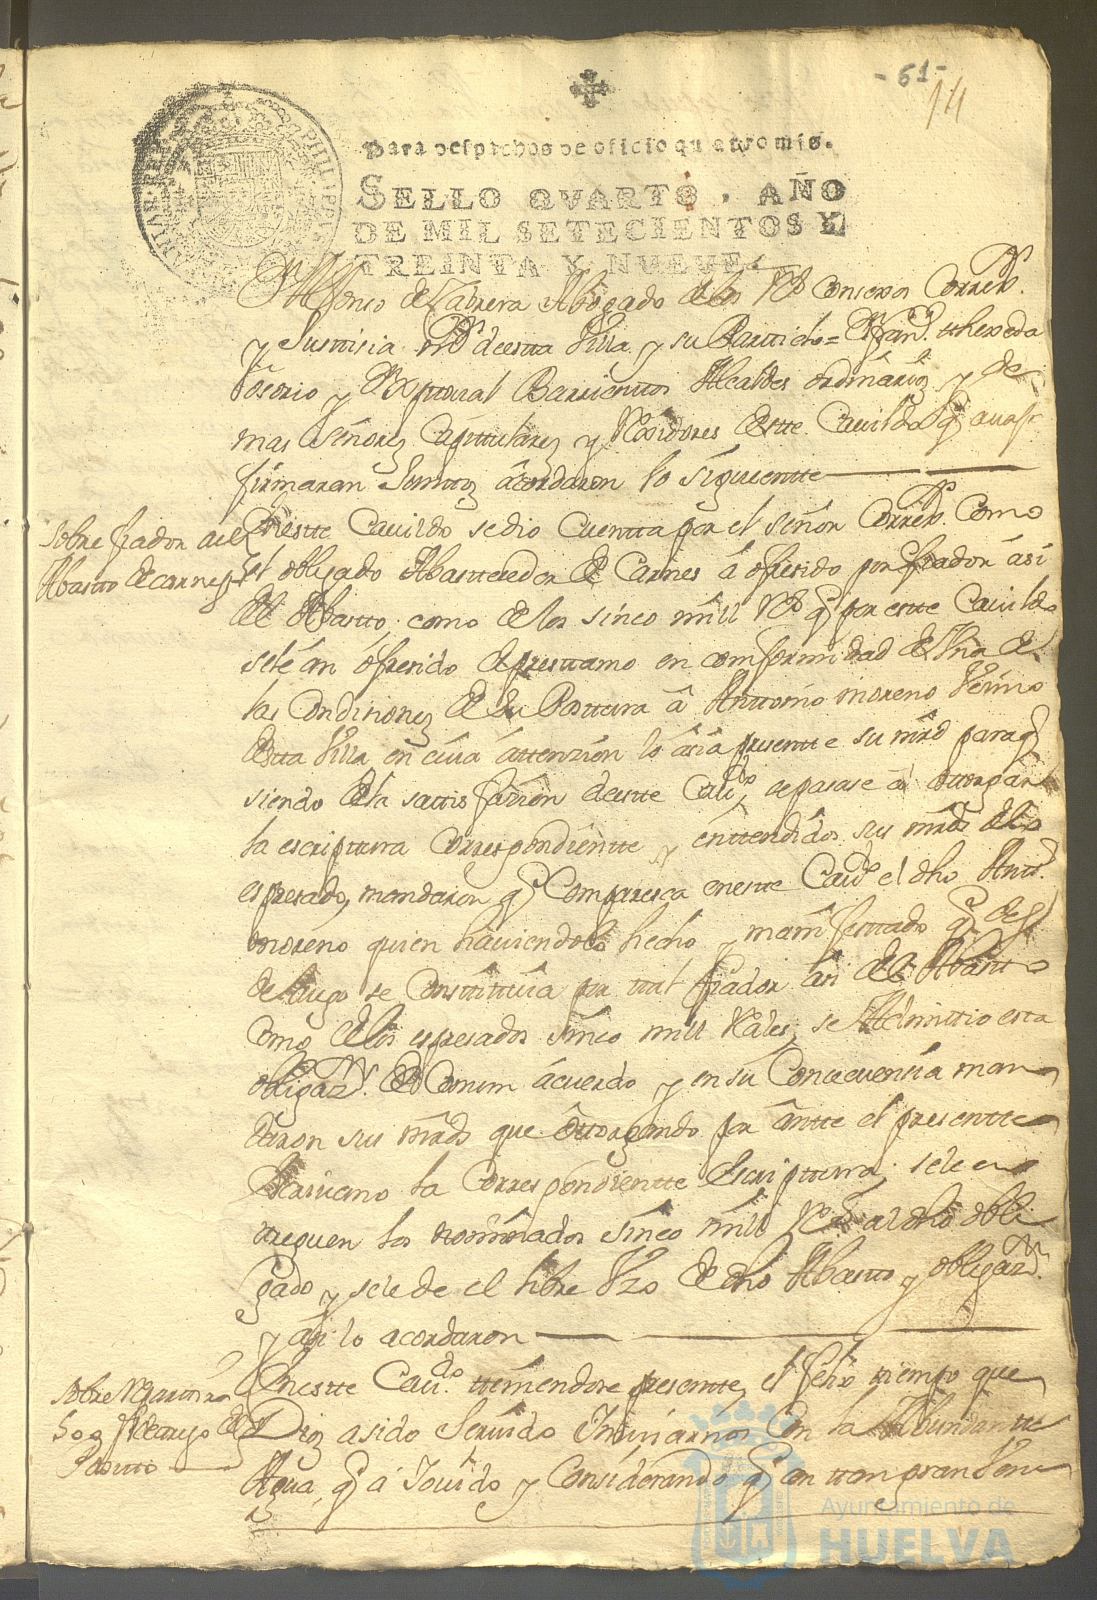 - 61 -
14
Para despachos de oficio quatro mrs.
SELLO QVARTO, AÑO
DE MIL SETECIENTOS Y
TREINTA Y NUEVE.
PHILIPPVS
Dn Alfonso de Cabrera Abogado de los Rs Consexos Correxr
y Justisia mr de esta Villa y su Parttido =
Osorio y Barrientos Alcaldes ordinarios y de
mas señores Capitulares y Rexidores deste Cavildo q avajo
firmaran Juntos acordaron lo siguientte
Sobre fiador del
Abasto de carnes
Enestte Cavildo se dio Cuentta por el señor Correxr Como
el obligado Abastesedor de Carnes á ofresido por fiador asi
del Abastto como de los sinco mill Rs q por estte Cavildo
sele án ófresido de presttamo en comformidad de Una de
las Condisiones de su Posttura á Anttonio moreno Vesino
destta Villa, en cuia áttenzion lo asia presentte su mrd para q
siendo de la sattisfazion de estte Cavdo se pasase á ottorgar
la escripttura Correspondientte y enttendidos sus mrds de lo
espresado, mandaron q Comparesca en estte Cavdo el dho Antt
moreno quien haviendolo hecho y manifesttado q desde
de luego se Constituia por ttal fiador asi del Abastto
Como de los espresados sinco mill Rales, se Admittio esta
obligazn de Comun ácuerdo y en su Consecuensia man
daron sus mrds que ottorgando por ántte el presentte
Escrivano la Correspondientte Escripttura, sele en
treguen los nominados sinco mill Rs al dho obli
gado y sele de el libre Uzo de dho Abastto y obligazn
y asi lo acordaron
Sobre
de
Enestte Cavdo ttemiendose presentte, el feliz tiempo que
Dios a sido Servido Inviarnos Con la Abundantte
Agua q á Llovido y Considerando q en ttan gran
Ayuntamiento de
HUELVA